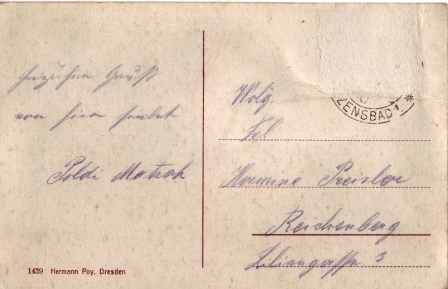 Herzlichen Gruß
von hier sendet
Poldi Matzak
1439 Hermann Poy, Dresden
ZENSBAD 1 *
Wolg.
Frl
Hermine Preisler
Reichenberg
Liliengasse 3